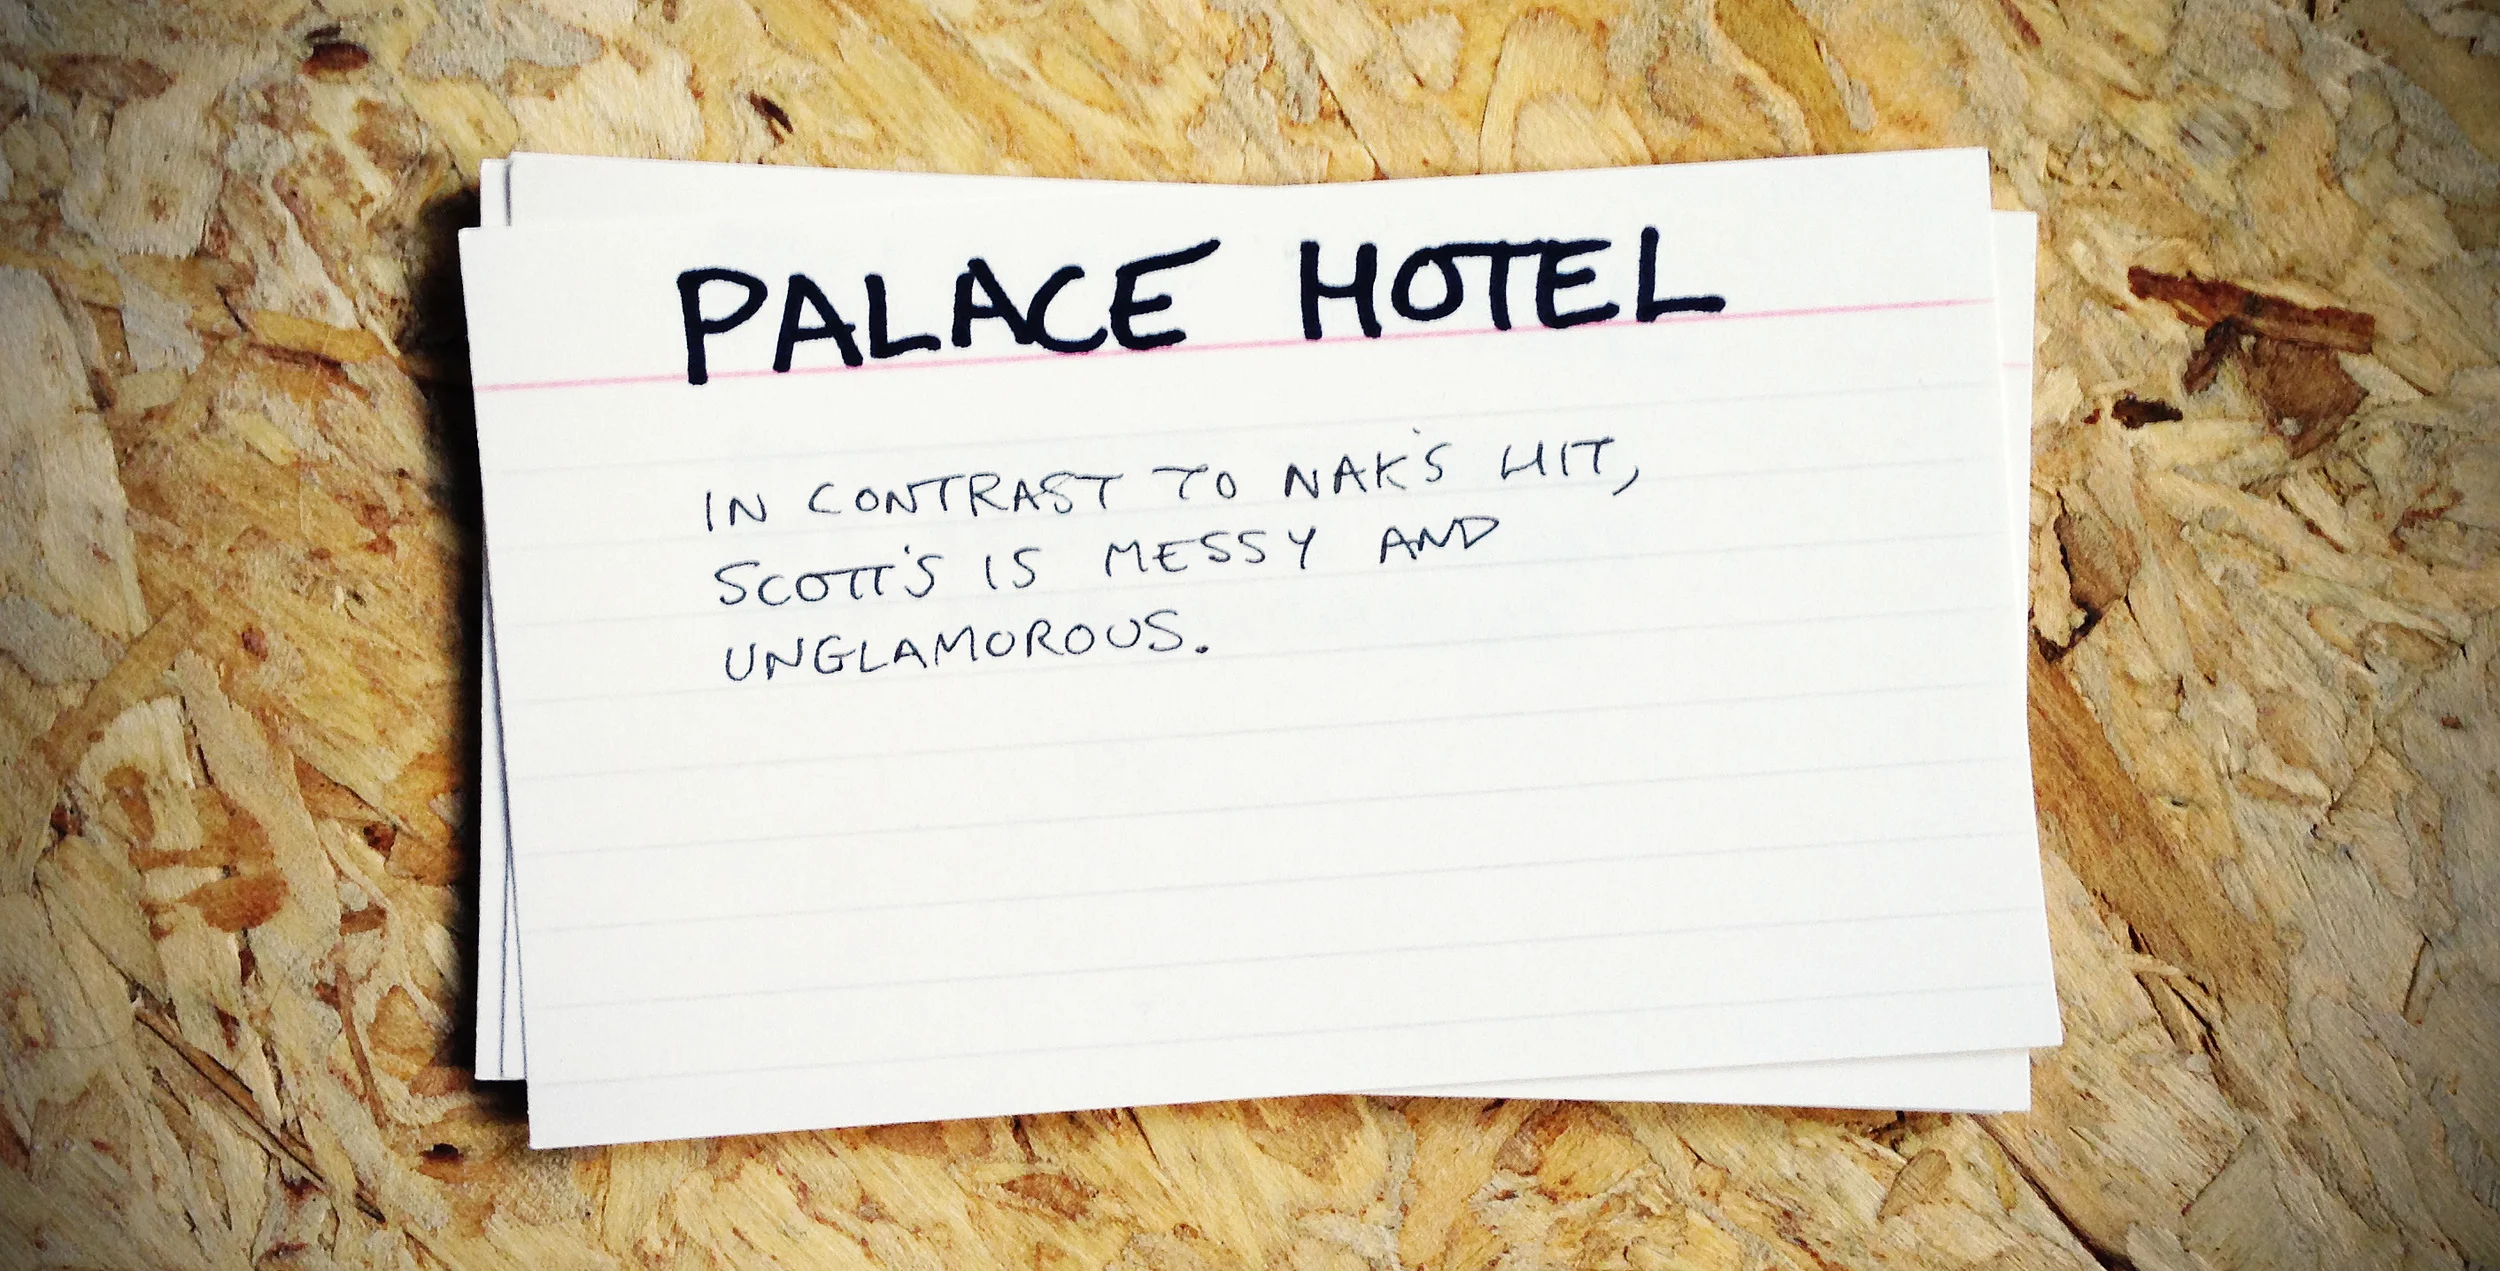 PALACE HOTEL
IN CONTRAST TO NAK'S HIT,
SCOTT'S IS MESSY AND
UNGLAMOROUS.